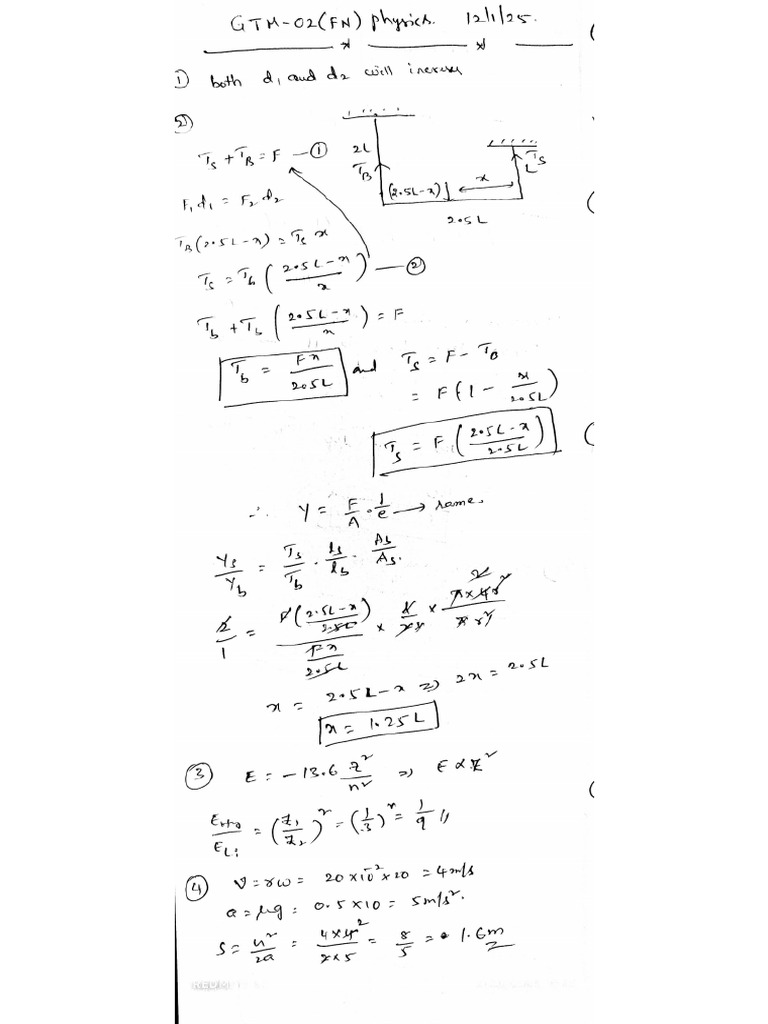 GTM-02(FN) physics. 12/1/25.
1) both d₁ and d₂ will increase
2)
2L
T_B
T_S
L
(2.5L-x)
x
2.5L
T_S + T_B = F —①
F₁d₁ = F₂d₂
T_B(2.5L-x) = T_S x
T_S = T_b ( (2.5L-x)/x ) —②
T_b + T_b ( (2.5L-x)/x ) = F
T_b = Fx/2.5L and T_S = F - T_B
= F(1 - x/2.5L)
T_S = F ( (2.5L-x)/2.5L )
∴ Y = F/A · l/e → same.
Y_s/Y_b = T_s/T_b · l_s/l_b · A_b/A_s.
2/1 = F( (2.5L-x)/2.5L ) / (Fx/2.5L) × L/2L × π×4r²/πr² 2
x = 2.5L-x ⇒ 2x = 2.5L
x = 1.25L
③ E = -13.6 z²/n² ⇒ E α z²
E_H/E_Li = (z₁/z₂)² = (1/3)² = 1/9 //
④ v = rω = 20×10⁻²×20 = 4m/s
a = μg = 0.5×10 = 5m/s².
S = u²/2a = 4×4/2×5 2 = 8/5 = 1.6m